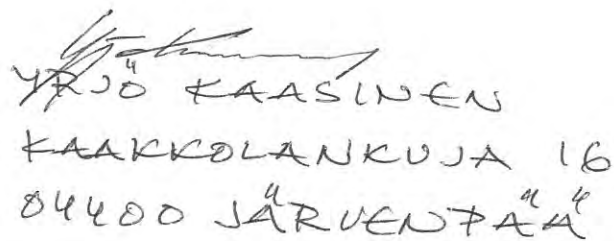 YRJÖ KAASINEN
KAAKKOLANKUJA 16
04400 JÄRVENPÄÄ